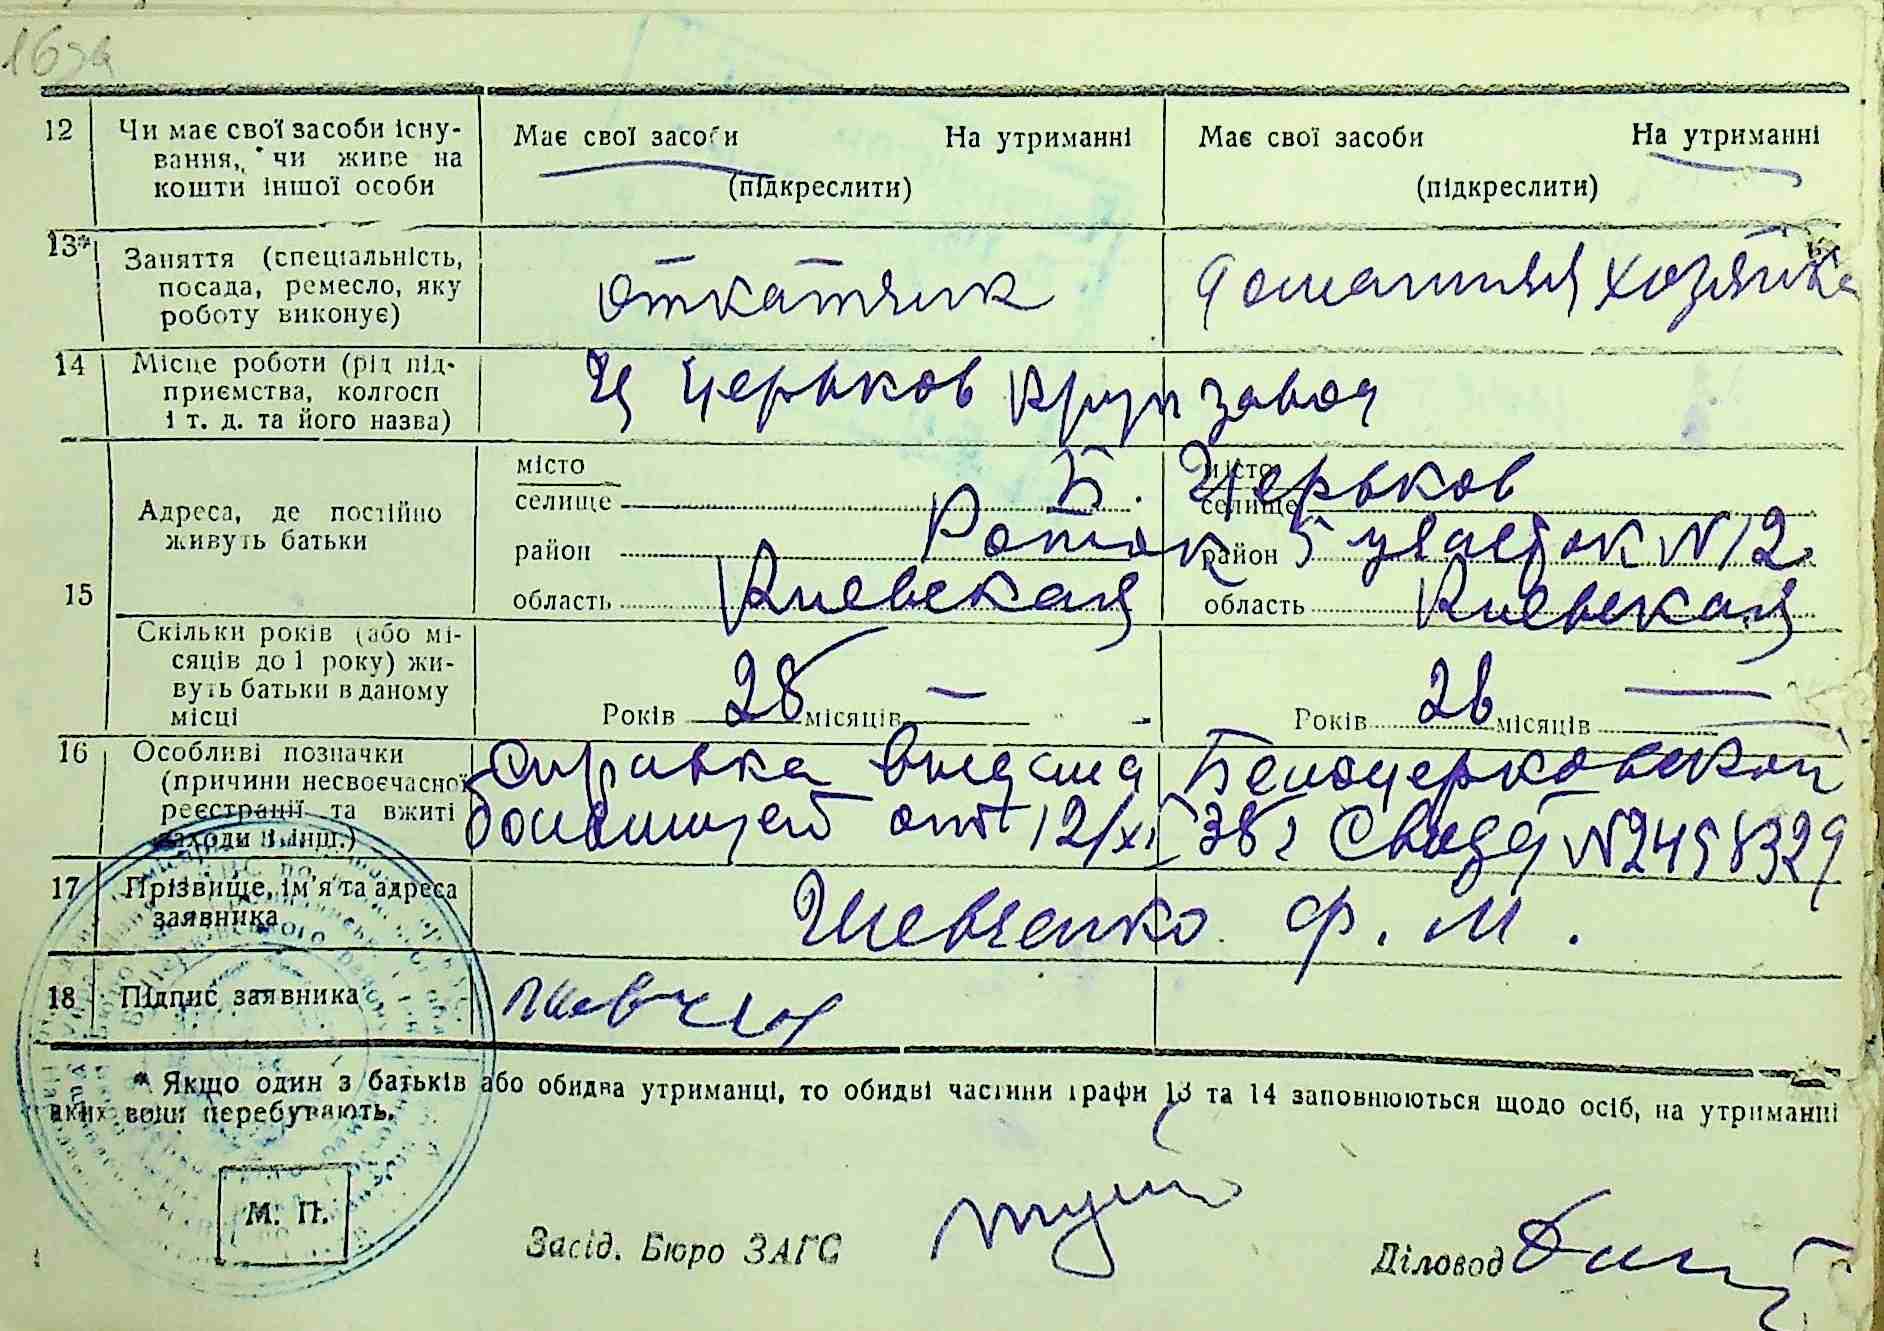 163а
12 Чи має свої засоби існу- Має свої засоби На утриманні Має свої засоби На утриманні
вання, чи живе на
кошти іншої особи (підкреслити) (підкреслити)
13* Заняття (спеціальність,
посада, ремесло, яку откатчик домашняя хозяйка
роботу виконує)
14 Місце роботи (рід під-
приємства, колгосп Церьков Круп завод
і т. д. та його назва)
місто Б. Церьков місто
Адреса, де постійно селище селище
живуть батьки район Роток район 5 участок N 12
15 область Киевская область Киевская
Скільки років (або мі-
сяців до 1 року) жи-
вуть батьки в даному
місці Років 28 місяців — Років 26 місяців —
16 Особливі позначки Справка выдана Белоцерковской
(причини несвоєчасної
реєстрації та вжиті больницей от 12/XI 38 г Свид N2458329
заходи й інш.)
17 Прізвище, ім'я та адреса
заявника Шевченко Ф. М.
18 Підпис заявника
* Якщо один з батьків або обидва утриманці, то обидві частини графи 13 та 14 заповнюються щодо осіб, на утриманні
яких вони перебувають.
М. П.
Засід. Бюро ЗАГС Діловод